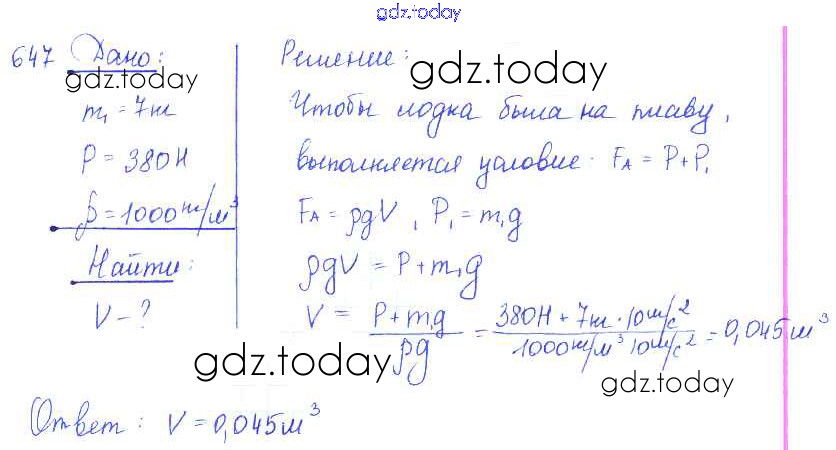 gdz.today
647 Дано:
gdz.today
m₁ = 7кг
P = 380Н
ρ = 1000кг/м³
Найти:
V - ?
Решение:
gdz.today
Чтобы лодка была на плаву,
выполняется условие: Fᴀ = P + P₁
Fᴀ = ρgV , P₁ = m₁g
ρgV = P + m₁g
V = (P + m₁g)/(ρg) = (380Н + 7кг · 10м/с²)/(1000кг/м³ 10м/с²) = 0,045м³
gdz.today
gdz.today
Ответ: V = 0,045м³